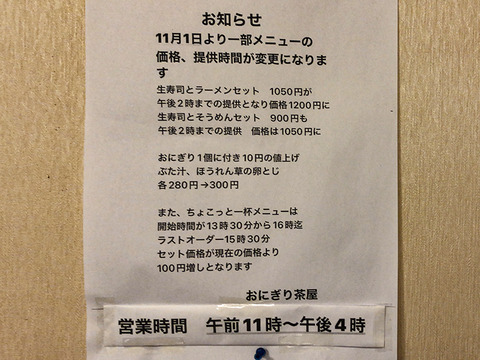 お知らせ
11月1日より一部メニューの
価格、提供時間が変更になりま
す
生寿司とラーメンセット　1050円が
午後2時までの提供となり価格1200円に
生寿司とそうめんセット　900円も
午後2時までの提供　価格は1050円に
おにぎり1個に付き10円の値上げ
ぶた汁、ほうれん草の卵とじ
各280円→300円
また、ちょこっと一杯メニューは
開始時間が13時30分から16時迄
ラストオーダー15時30分
セット価格が現在の価格より
100円増しとなります
おにぎり茶屋
営業時間　午前11時〜午後4時